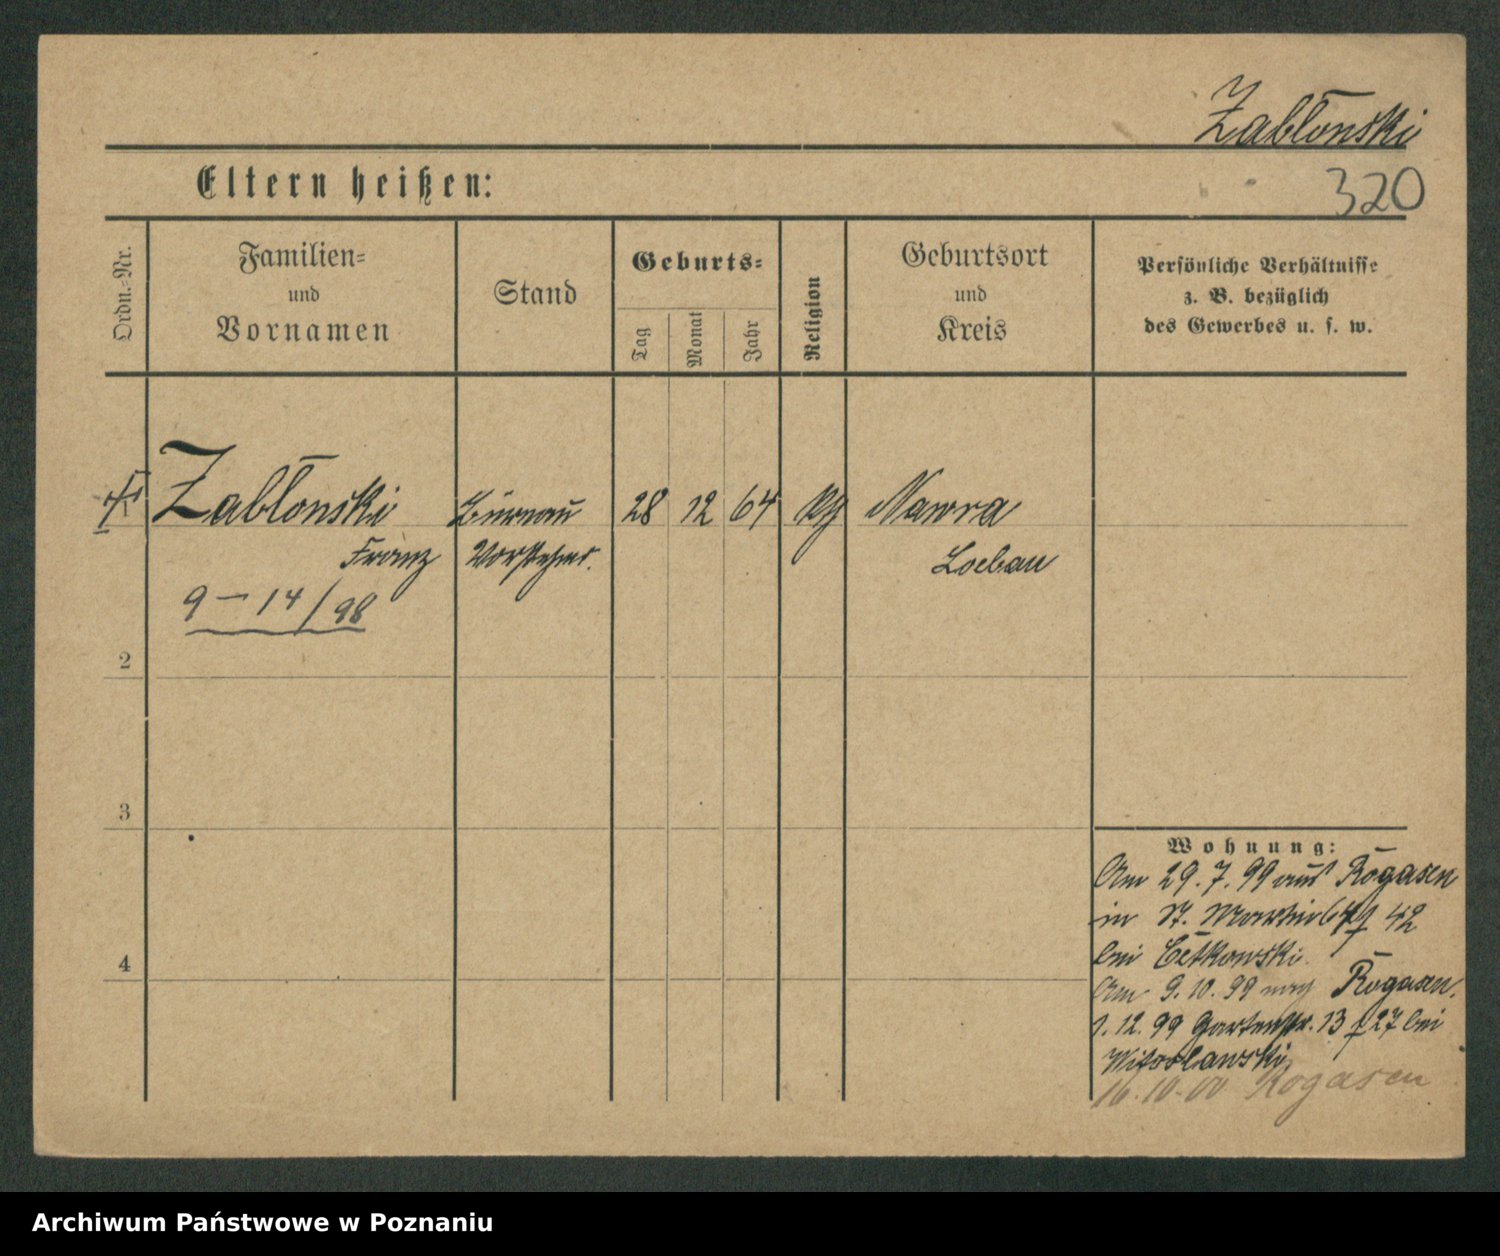 Zabłonski
Eltern heißen:
320
Ordn.-Nr.
Familien-
und
Vornamen
Stand
Geburts-
Tag
Monat
Jahr
Religion
Geburtsort
und
Kreis
Persönliche Verhältnisse
z. B. bezüglich
des Gewerbes u. s. w.
Zabłonski Büreau 28 12 64 Nawra
Franz Vorsteher. Loebau
9 — 14/98
2
3
4
Wohnung:
Am 29. 7. 99 aus Rogasen
in St. Martin 42
bei Cetkowski.
Am 9. 10. 99 nach Rogasen.
1. 12. 99 Gartenstr. 13 27 bei
Witoslawski,
16. 10. 00 Rogasen
Archiwum Państwowe w Poznaniu